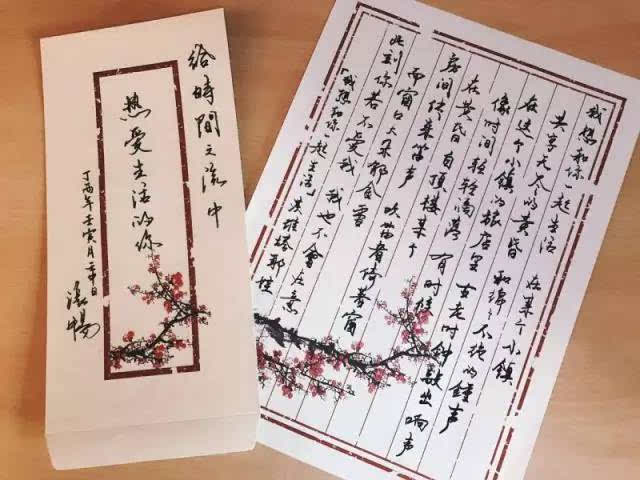 给時間之流中
热爱生活的你
丁酉年壬寅月
我想和你一起生活 在某个小镇
共享无尽的黄昏 和绵绵不绝的鐘声
在这个小镇的旅店里 古老时钟敲出响声
像时间轻轻滴落 有时候
在黄昏 自顶楼某个
房间传来笛声 吹笛者倚著窗
而窗口大朵郁金香
此刻你若不爱我 我也不會在意
「我想和你一起生活」茨維塔耶娃